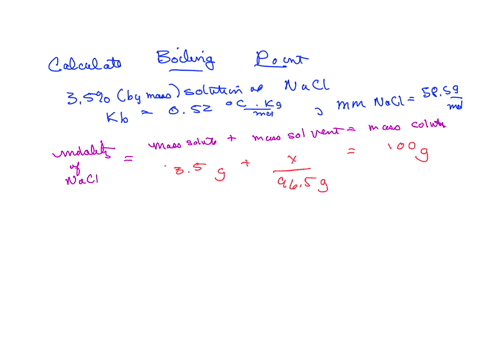 Calculate Boiling Point
3.5% (by mass) solution of NaCl
Kb = 0.52 °C . Kg / mol , mm NaCl = 58.5 g / mol
molality of NaCl = mass solute + mass solvent = mass
3.5 g + x / 96.5 g = 100 g